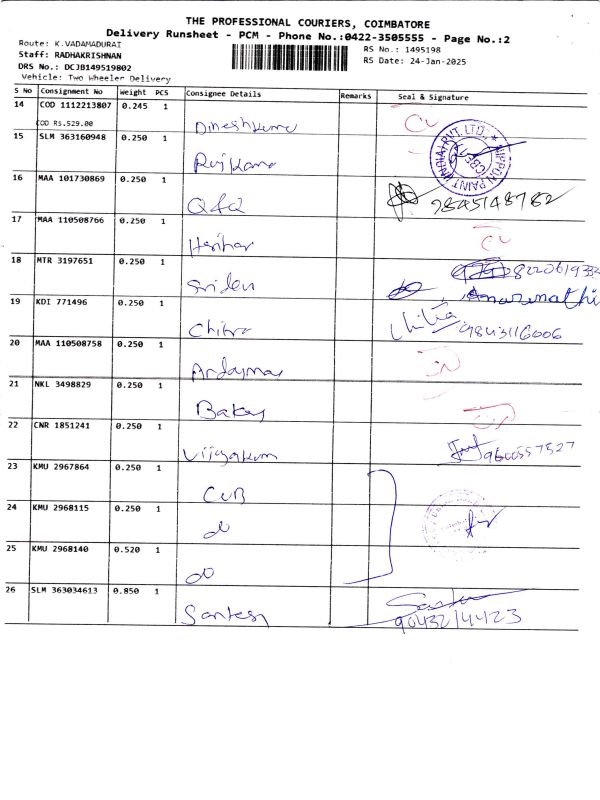 THE PROFESSIONAL COURIERS, COIMBATORE
Delivery Runsheet - PCM - Phone No.:0422-3505555 - Page No.:2
Route: K.VADAMADURAI
RS No.: 1495198
Staff: RADHAKRISHNAN
RS Date: 24-Jan-2025
DRS No.: DCJB149519802
Vehicle: Two Wheeler Delivery
S No Consignment No Weight PCS Consignee Details Remarks Seal & Signature
14 COD 1112213807 0.245 1
COD RS.529.00 Dineshkumar
15 SLM 363160948 0.250 1
16 MAA 101730869 0.250 1
9845148782
17 MAA 110508766 0.250 1
Harihar
18 MTR 3197651 0.250 1
Amarnathi
19 KDI 771496 0.250 1
Chitra 9843116006
20 MAA 110508758 0.250 1
21 NKL 3498829 0.250 1
22 CNR 1851241 0.250 1
9600557527
23 KMU 2967864 0.250 1
CUB
24 KMU 2968115 0.250 1
do
25 KMU 2968140 0.520 1
do
26 SLM 363034613 0.850 1
Santosh
9043214423